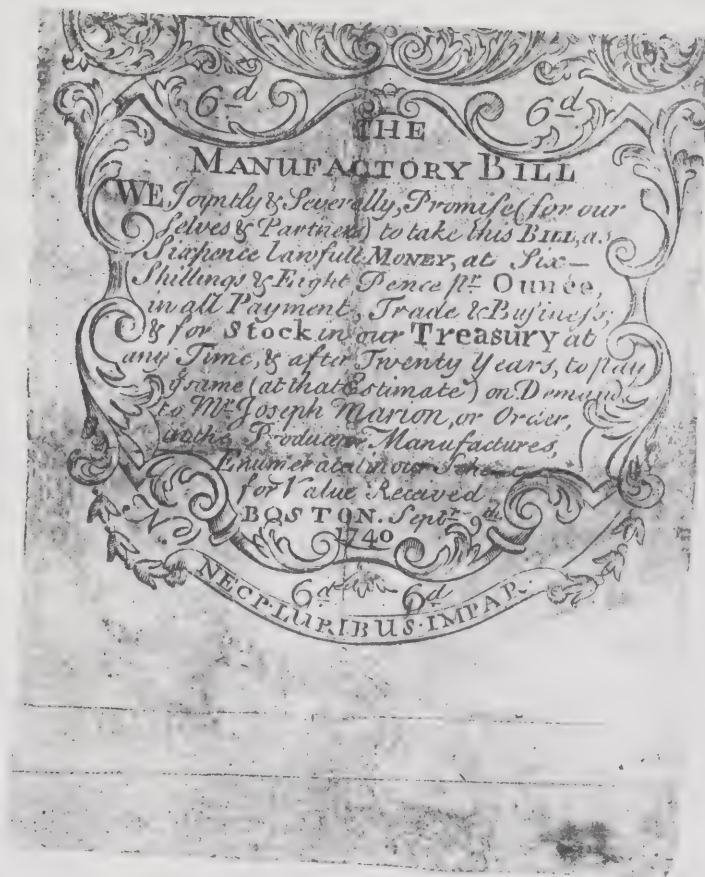 6d 6d
THE
MANUFACTORY BILL
WE Joyntly & Severally, Promise (for our
selves & Partners) to take this BILL, as
Sixpence lawfull MONEY, at Six-
Shillings & Eight Pence pr. Ounce,
in all Payment, Trade & Business;
& for Stock in our Treasury at
any Time, & after Twenty Years, to pay
ye same (at that Estimate) on Demand,
to Mr. Joseph Marion, or Order,
in the Produce or Manufactures,
Enumerated in our Scheme
for Value Received
BOSTON. Septr. 9th.
1740
6d 6d
NEC·PLURIBUS·IMPAR·